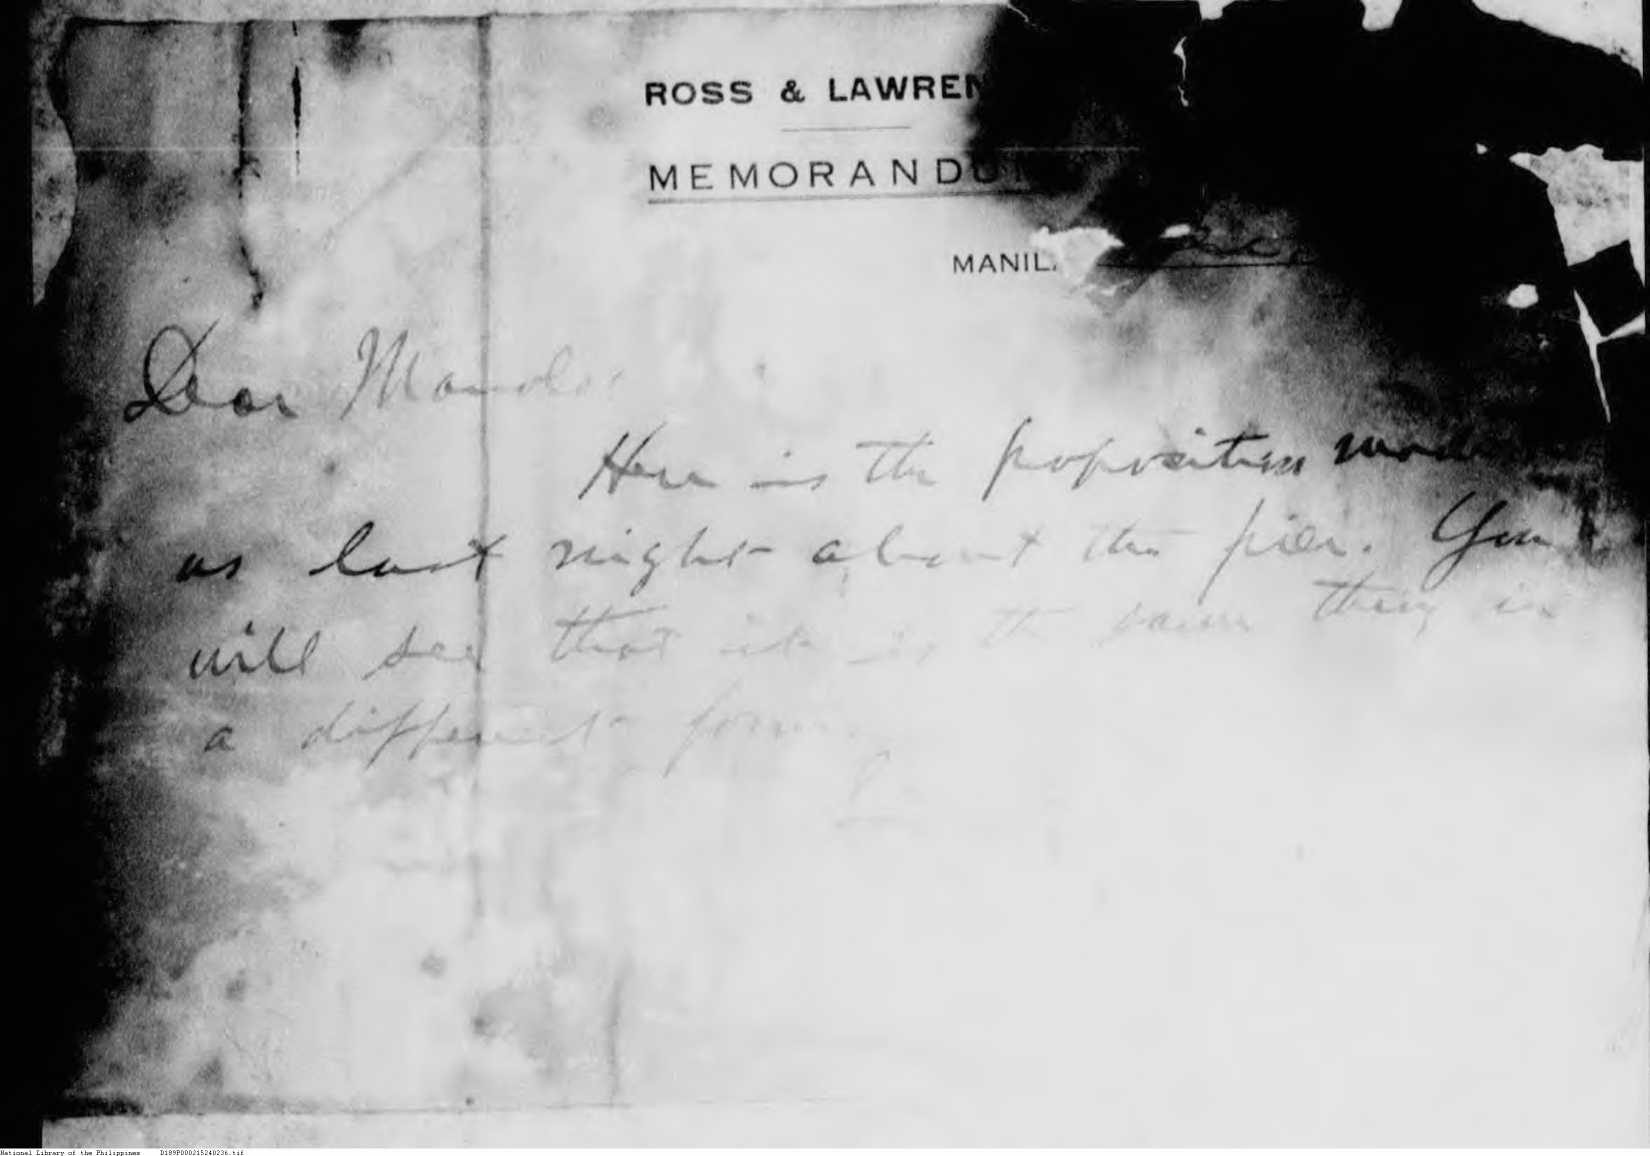 ROSS & LAWREN
MEMORANDUM
MANIL
Dear
Here is the proposition made
us last night about the pier. You
will see that it is the same thing in
a different form
National Library of the Philippines D189P000215240236.tif